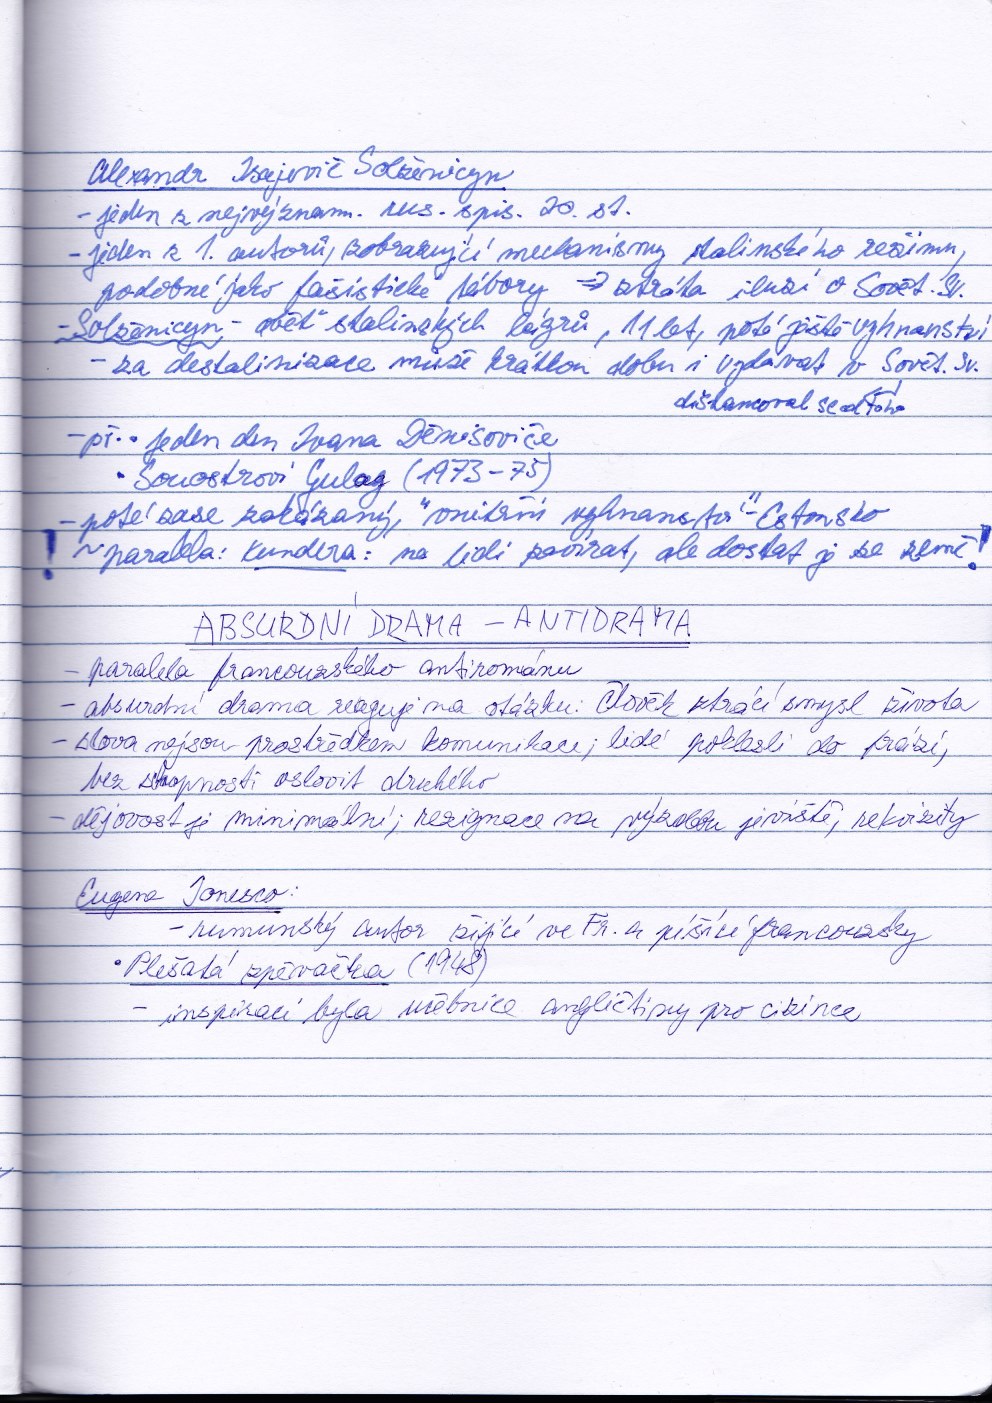 Alexandr Isajevič Solženicyn
- jeden z nejvýznam. rus. spis. 20. st.
- jeden z 1. autorů, zobrazující mechanismy stalinského režimu,
podobné jako fašistické tábory => ztráta iluzí o Sovět. Sv.
- Solženicyn - oběť stalinských lágrů, 11 let, poté ještě vyhnanství
- za destalinizace může krátkou dobu i vydávat v Sovět. Sv.
distancoval se od toho
- př. • Jeden den Ivana Děnisoviče
• Souostroví Gulag (1973-75)
- poté zase zakázaný, "vnitřní vyhnanství" - Estonsko
! ~ paralela: Kundera: ne lidi zavírat, ale dostat je ze země!
ABSURDNÍ DRAMA - ANTIDRAMA
- paralela francouzského antirománu
- absurdní drama reaguje na otázku: Člověk ztrácí smysl života
- slova nejsou prostředkem komunikace; lidé poklesli do frází,
bez schopnosti oslovit druhého
- dějovost je minimální; rezignace na výzdobu jeviště, rekvizity
Eugene Ionesco:
- rumunský autor žijící ve Fr. a píšící francouzsky
• Plešatá zpěvačka (1948)
- inspirací byla učebnice angličtiny pro cizince